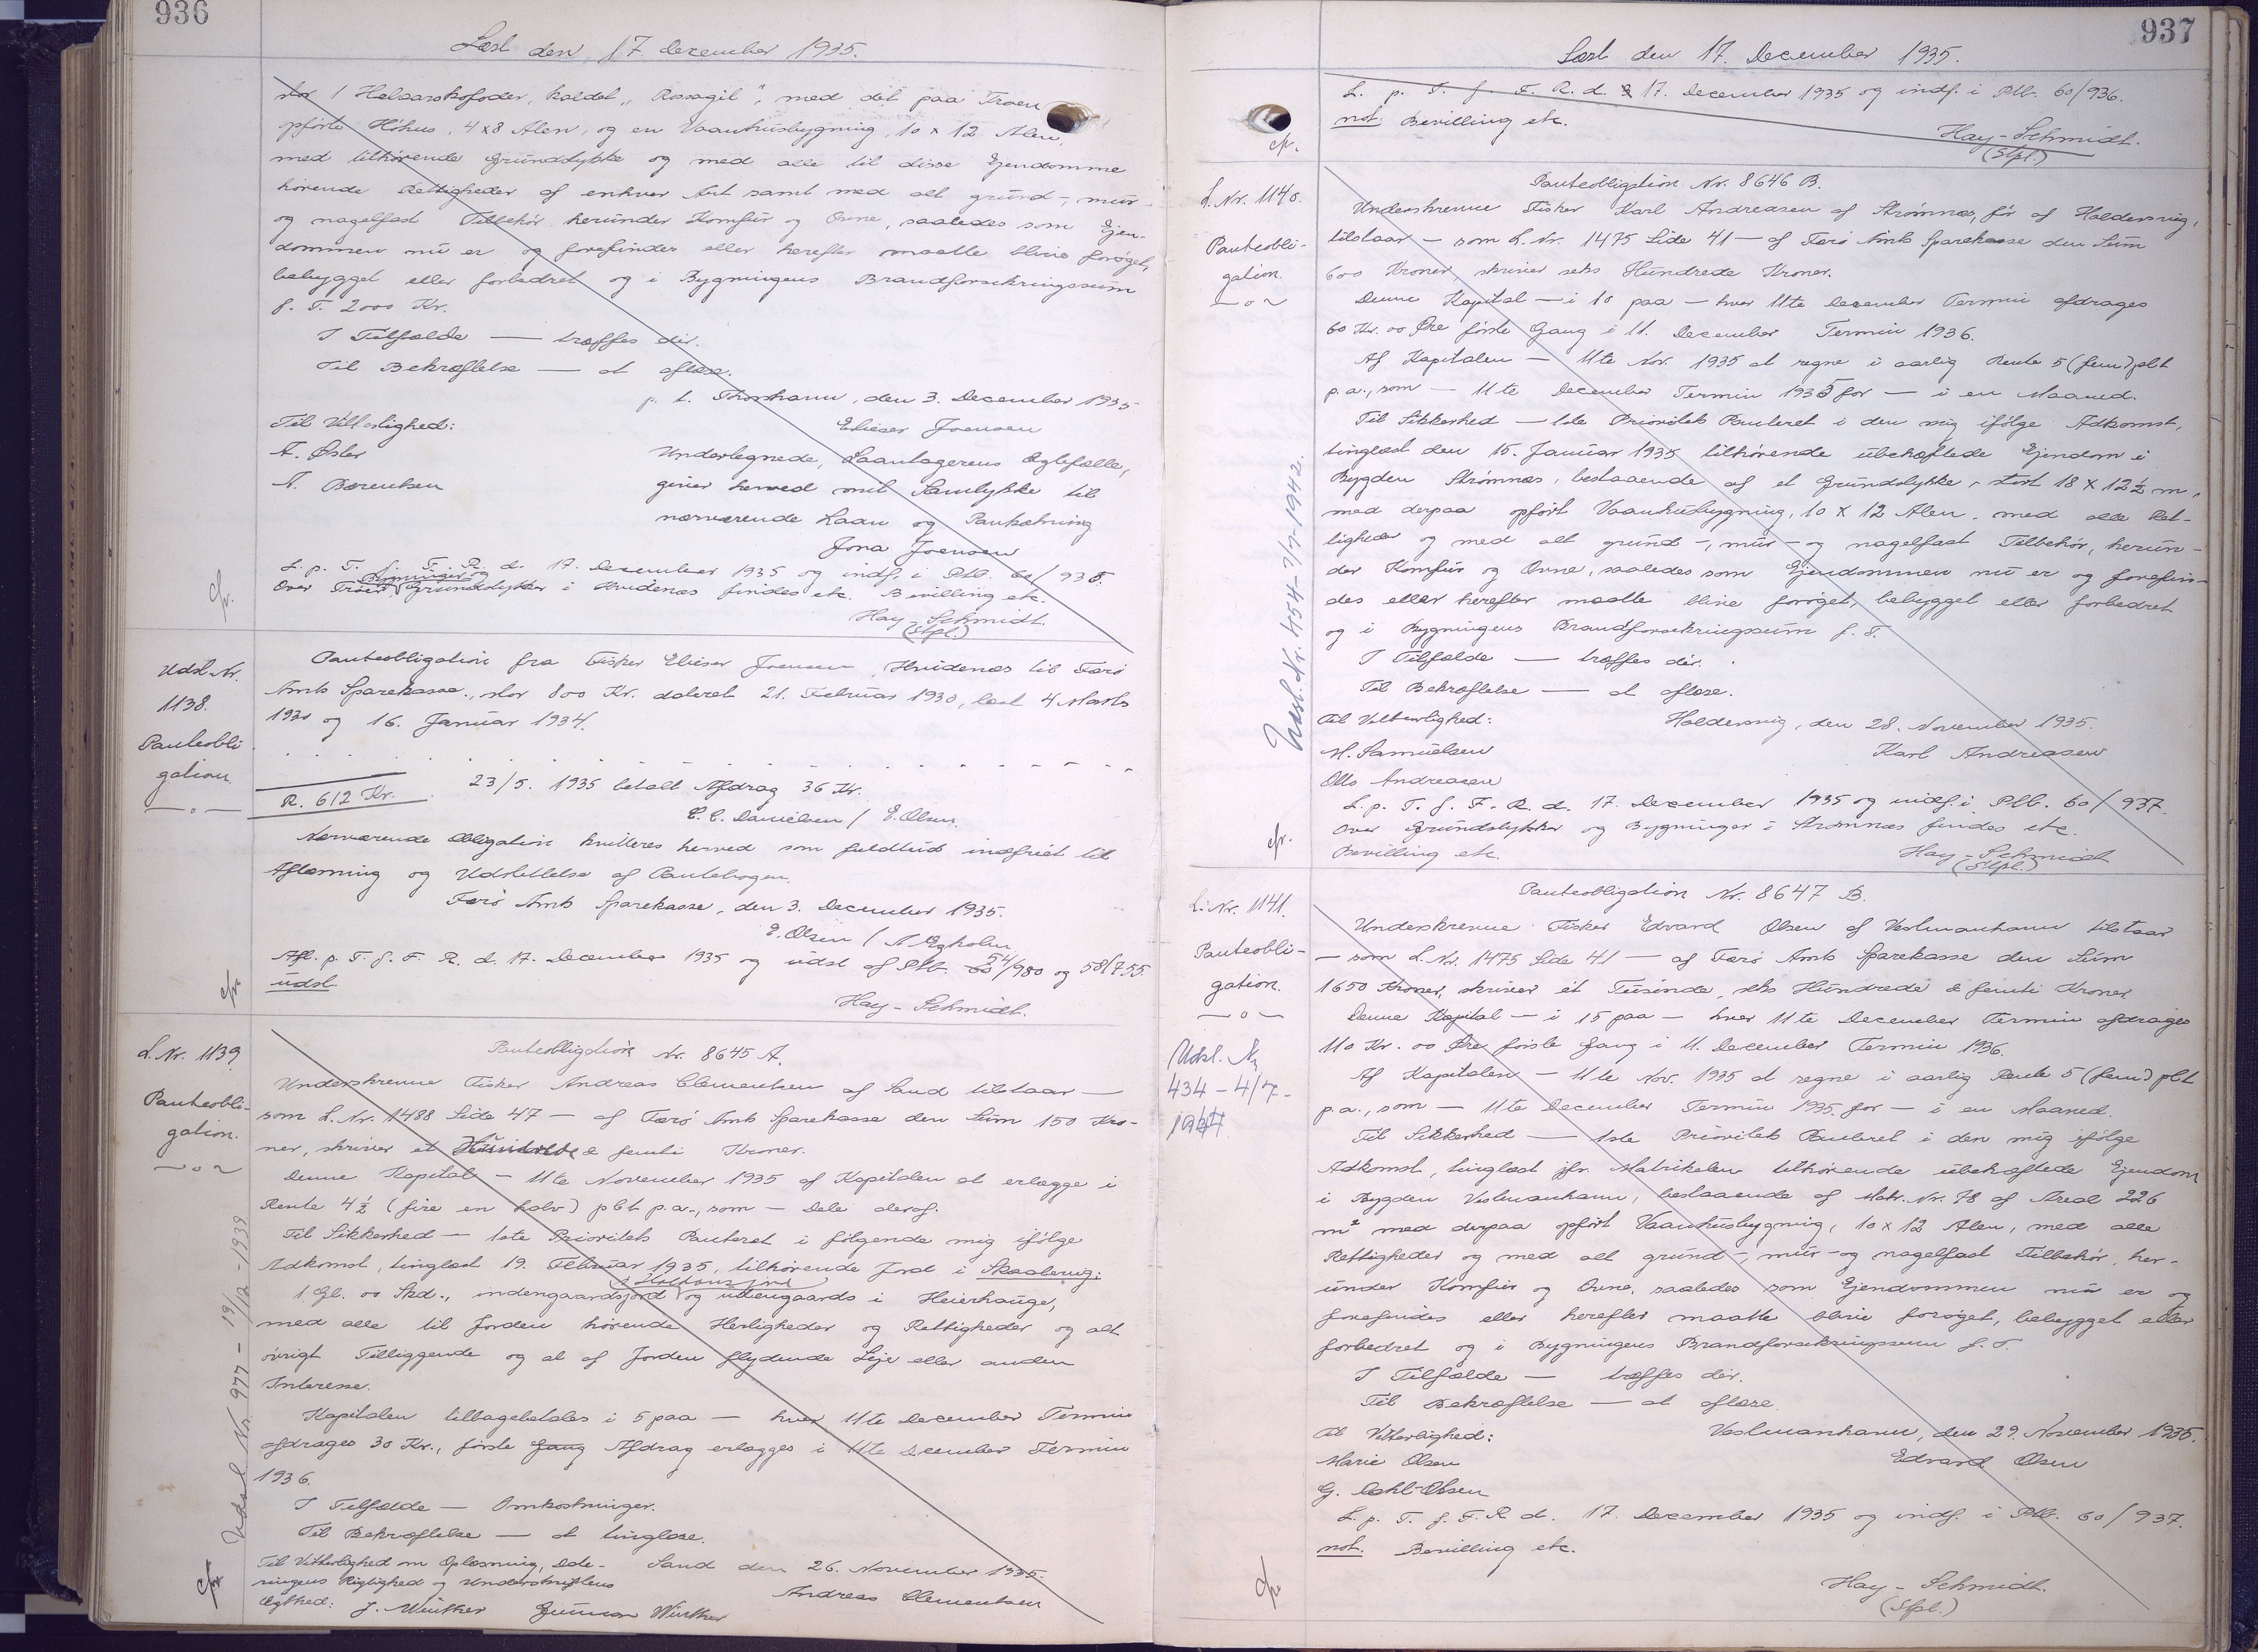 936
Læst den 17 December 1935.
stor 1 Helaarskofoder, kaldet „Rossagil“, med det paa Troen
opførte Høhus, 4x8 Alen, og en Vaaanhusbygning, 10 x 12 Alen,
med tilhørende Grundstykke og med alle til disse Ejendomme
hørende Rettigheder af enhver Art samt med alt grund-, mur-
og nagelfast Tilbehør herunder Komfur og Ovne, saaledes som Ejen-
dommen nu er og forefindes eller herefter maatte blive forøget,
bebygget eller forbedret og i Bygningens Brandforsikringssum
f. T. 2000 Kr.
I Tilfælde — træffes dér.
Til Bekræftelse — at aflæse.
p. t. Thorshavn, den 3. December 1935
Til Vitterlighed:
Elieser Joensen
A. Øster
Undertegnede, Laantagerens Ægtefælle,
N. Berentsen
giver herved mit Samtykke til
nærværende Laan og Pantsætning
Jona Joensen
L. p. T. f. F. R. d. 17. December 1935 og indf. i Ptb. 60/935.
Over Troen, Bygninger og Grundstykker i Hvidenæs findes etc. Bevilling etc.
Hay-Schmidt.
(Stpl.)
cfr.
Udsl. Nr.
1138.
Panteobli
gation.
Panteobligation fra Fisker Elieser Joensen, Hvidenæs til Færø
Amts Sparekasse., stor 800 Kr. dateret 21. Februar 1930, læst 4 Marts
1930 og 16. Januar 1934.
R. 612 Kr. 23/5. 1935 betalt Afdrag 36 Kr.
C. C. Danielsen / E. Olsen.
Nærværende Obligation kvitteres herved som fuldtud indfriet til
Aflæsning og Udslettelse af Pantebogen.
Færø Amts Sparekasse, den 3. December 1935.
E. Olsen / N Egholm
Afl. p. T. f. F. R. d. 17. December 1935 og udsl af Ptb. 54/980 og 58/755.
udsl.
Hay-Schmidt.
cfr.
L. Nr. 1139
Panteobli-
gation.
Panteobligation Nr. 8645 A.
Underskrevne Fisker Andreas Clementsen af Sand tilstaar —
som L. Nr. 1488 Side 47 — af Færø Amts Sparekasse den Sum 150 Kro-
ner, skriver et Hundrede & femti Kroner.
Denne Kapital — 11te November 1935 af Kapitalen at erlægge i
Rente 4½ (fire en halv) pCt p.a., som — Dele deraf.
Til Sikkerhed — 1ste Prioritets Panteret i følgende mig ifølge
Adkomst, tinglæst 19. Februar 1935, tilhørende Jord i Skaalevig:
1 Gl. 00 Skd., indengaardsjord og udengaards i Heierhauge,
med alle til Jorden hørende Herligheder og Rettigheder og alt
øvrigt Tilliggende og al af Jorden flydende Leje eller anden
Interesse.
Kapitalen tilbagebetales i 5 paa — hver 11te December Termin
afdrages 30 Kr., første Gang Afdrag erlægges i 11te December Termin
1936.
I Tilfælde — Omkostninger.
Til Bekræftelse — at tinglæse.
Til Vitterlighed om Oplæsning, Date-
ringens Rigtighed og Underskriftens
Ægthed: J. Winther Gunnar Winther
Sand den 26. November 1935.
Andreas Clementsen
Udsl Nr. 977 – 19/12 - 1939
cfr.
937
Læst den 17. December 1935.
L. p. T. f. F. R. d. 17. December 1935 og indf. i Ptb. 60/936.
not. Bevilling etc.
Hay-Schmidt.
(Stpl.)
cfr.
L. Nr. 1140.
Panteobli-
gation.
Panteobligation Nr. 8646 B.
Underskrevne Fisker Karl Andreasen af Strømnæs, før af Haldersvig,
tilstaar — som L. Nr. 1475 Side 41 — af Færø Amts Sparekasse den Sum
600 Kroner, skriver seks Hundrede Kroner.
Denne Kapital — i 10 paa — hver 11te December Termin afdrages
60 Kr. 00 Øre første Gang i 11. December Termin 1936.
Af Kapitalen — 11te Nov. 1935 at regne i aarlig Rente 5 (fem) pCt
p.a., som — 11te December Termin 1935 for — i en Maaned.
Til Sikkerhed — 1ste Prioritets Panteret i den mig ifølge Adkomst,
tinglæst den 15. Januar 1935 tilhørende ubehæftede Ejendom i
Bygden Strømnæs, bestaaende af et Grundstykke, stort 18 x 12½ m,
med derpaa opført Vaaanhusbygning, 10 x 12 Alen, med alle Ret-
tigheder og med alt grund-, mur- og nagelfast Tilbehør, herun-
der Komfur og Ovne, saaledes som Ejendommen nu er og forefin-
des eller herefter maatte blive forøget, bebygget eller forbedret
og i Bygningens Brandforsikringssum f. T.
I Tilfælde — træffes dér.
Til Bekræftelse — at aflæse.
Til Vitterlighed: Haldersvig, den 28. November 1935.
M. Samuelsen Karl Andreasen
Otto Andreasen
L. p. T. f. F. R. d. 17. December 1935 og indf. i Ptb. 60/937.
Over Grundstykker og Bygninger i Strømnæs findes etc.
Bevilling etc.
Hay-Schmidt
(Stpl.)
Udsl. Nr. 454 - 7/7-1942.
cfr.
L. Nr. 1141.
Panteobli-
gation.
Udsl. Nr
434 – 4/7 -
1944
Panteobligation Nr. 8647 B.
Underskrevne Fisker Edvard Olsen af Vestmanhavn tilstaar
— som L. Nr. 1475 Side 41 — af Færø Amts Sparekasse den Sum
1650 Kroner, skriver ét Tusinde, seks Hundrede & femti Kroner
Denne Kapital — i 15 paa — hver 11te December Termin afdrages
110 Kr. 00 Øre første Gang i 11. December Termin 1936.
Af Kapitalen — 11te Nov. 1935 at regne i aarlig Rente 5 (fem) pCt
p.a., som — 11te December Termin 1935 for — i en Maaned.
Til Sikkerhed — 1ste Prioritets Panteret i den mig ifølge
Adkomst, tinglæst jfr. Matrikelen tilhørende ubehæftede Ejendom
i Bygden Vestmanhavn, bestaaende af Matr. Nr. 78 af Areal 226
m² med derpaa opført Vaaanhusbygning, 10 x 12 Alen, med alle
Rettigheder og med alt grund-, mur- og nagelfast Tilbehør, her-
under Komfur og Ovne, saaledes som Ejendommen nu er og
forefindes eller herefter maatte blive forøget, bebygget eller
forbedret og i Bygningens Brandforsikringssum f. T.
I Tilfælde — træffes dér.
Til Bekræftelse — at aflæse.
Til Vitterlighed: Vestmanhavn, den 29. November 1935.
Marie Olsen Edvard Olsen
G. Dahl-Olsen
L. p. T. f. F. R d. 17. December 1935 og indf. i Ptb. 60/937.
not. Bevilling etc.
Hay-Schmidt.
(Stpl.)
cfr.